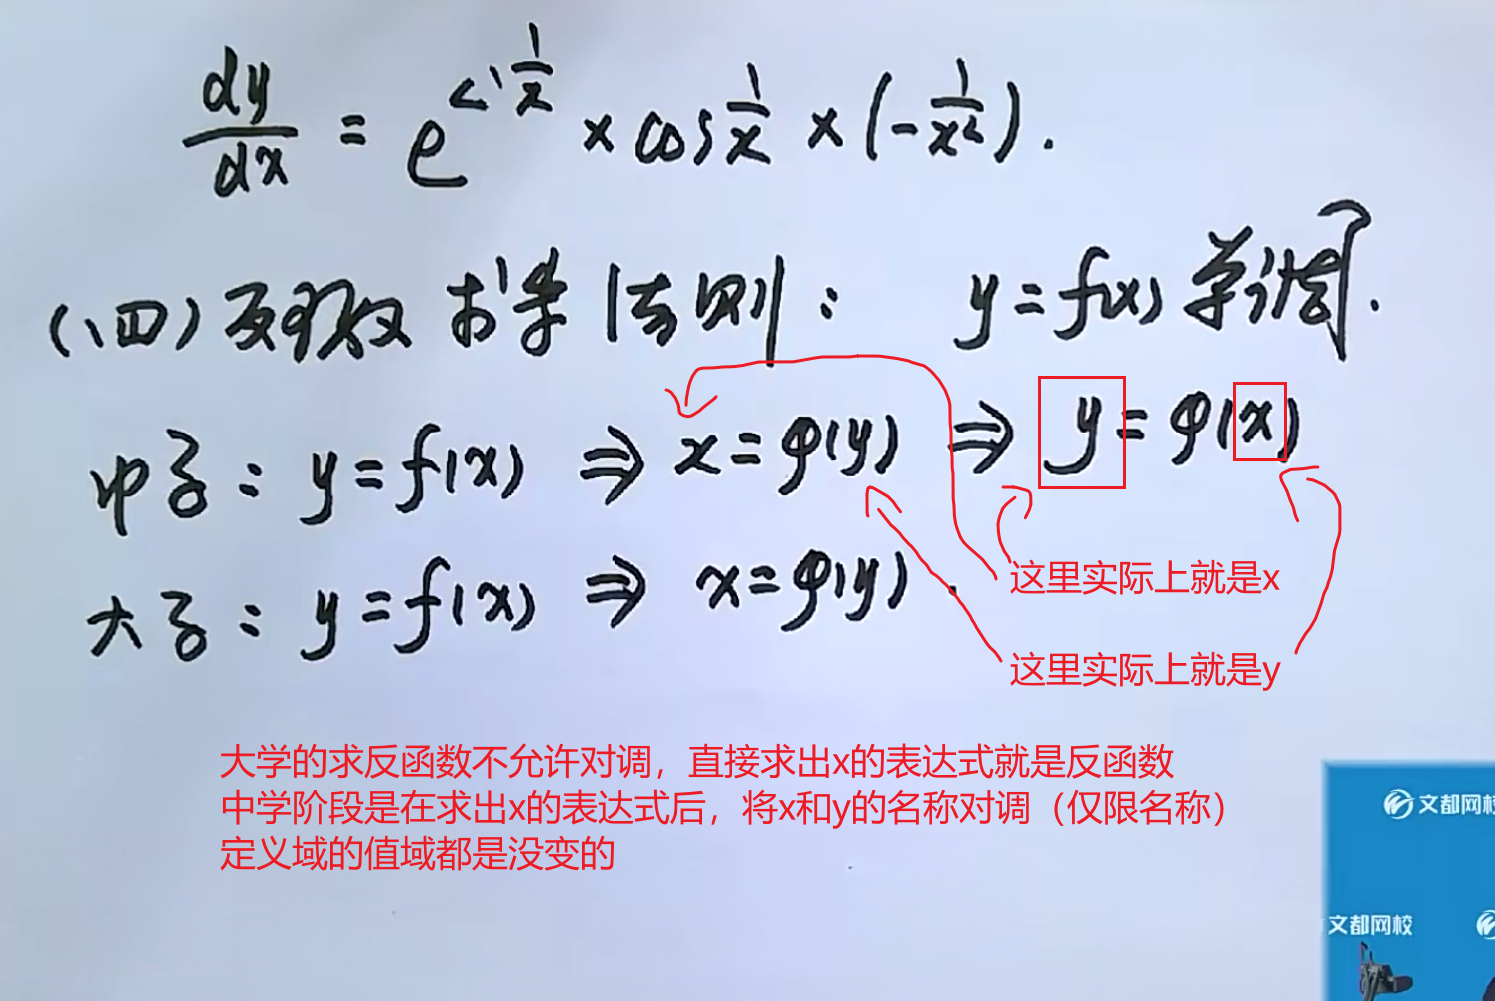 dy/dx = e^{sin 1/x} × cos 1/x × (-1/x²).
(四) 反函数求导法则: y=f(x) 单调.
中学: y=f(x) ⇒ x=φ(y) ⇒ y=φ(x)
大学: y=f(x) ⇒ x=φ(y).
这里实际上就是x
这里实际上就是y
大学的求反函数不允许对调，直接求出x的表达式就是反函数
中学阶段是在求出x的表达式后，将x和y的名称对调（仅限名称）
定义域的值域都是没变的
文都网校
文都网校